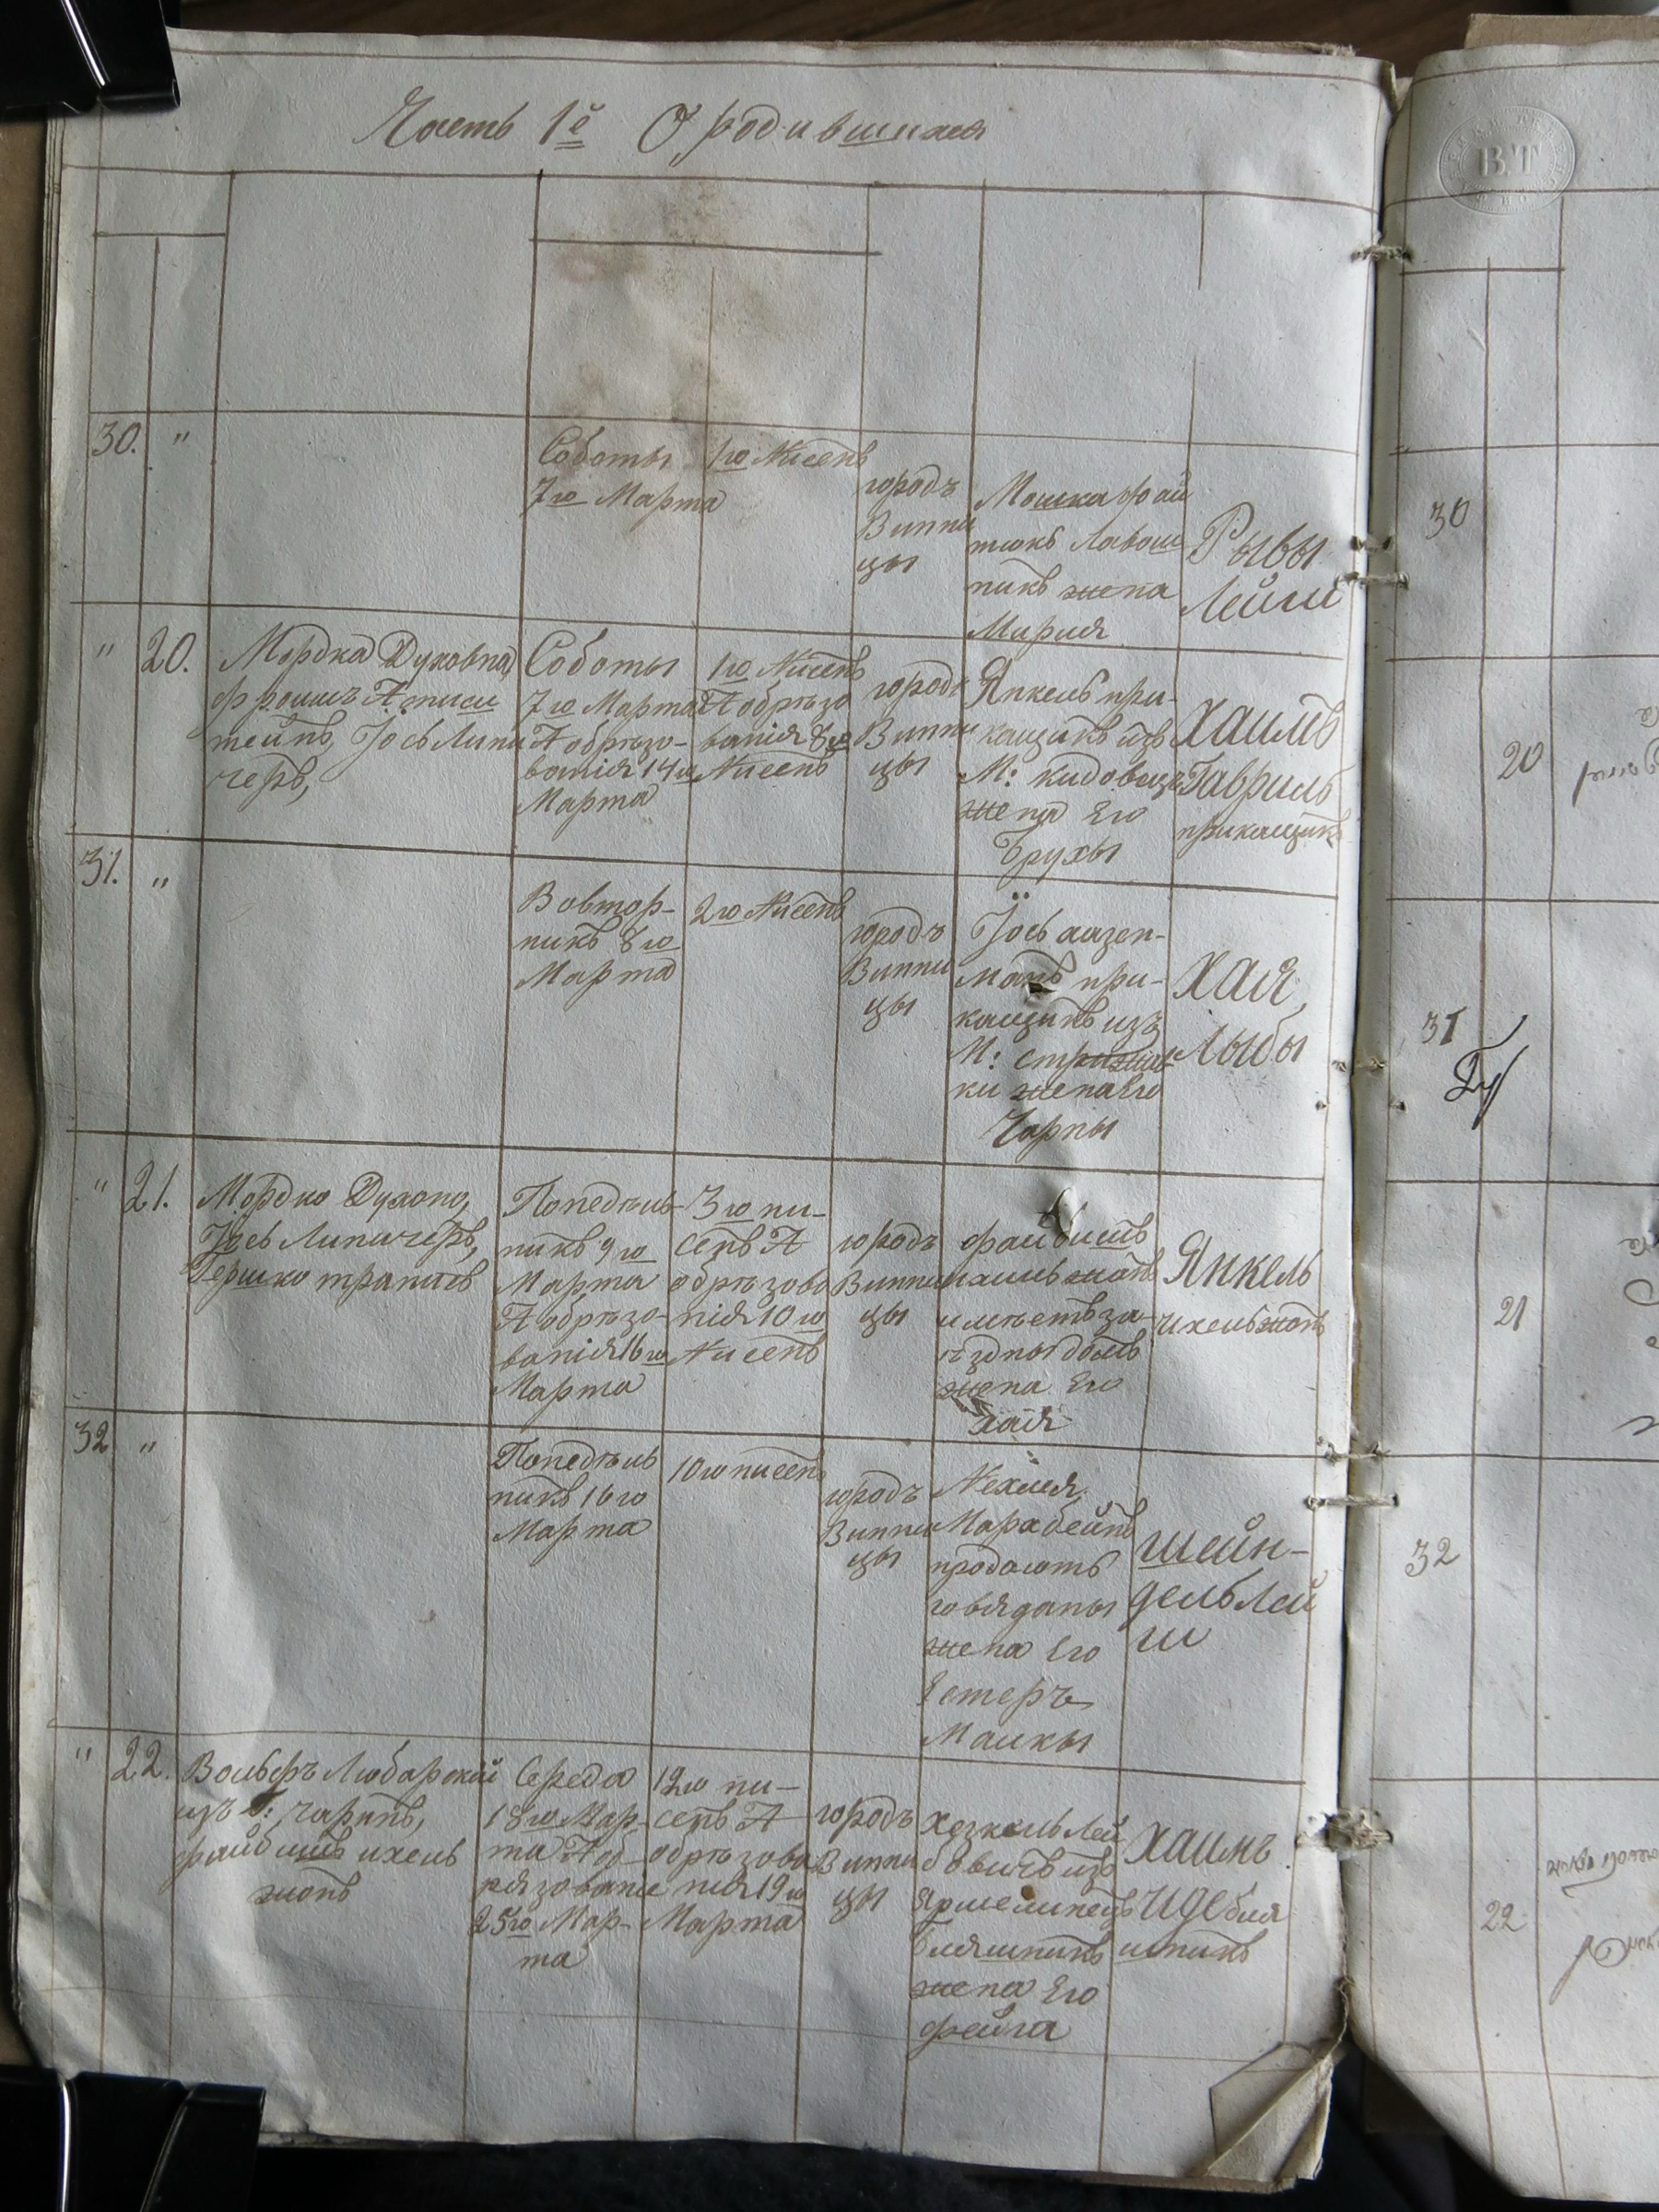 Часть 1ѣ О родившихся
30. "
Соботы
7го Марта
1го Нисенъ
городъ
Винни
цы
Мошка фай
никъ жена
Мирия
Рывы
Лейги
" 20.
Мордка Духовна,
тейнъ, Іось Липи
черъ,
Соботы
7го Марта
А обрѣзо-
ванія 14го
Марта
1го Нисенъ
А обрѣзо
ванія 8го
Нисенъ
городъ
Винни
цы
Янкель при-
кащикъ изъ
М:
жена Его
Брухы
Хаимъ
Гавриль
прикащикъ
31. "
Вовтор-
никъ 8го
Марта
2го Нисенъ
городъ
Винни
цы
Іось айзен-
манъ при-
кащикъ изъ
М: стрижав-
ки жена Его
Чарны
Хая
Лыбы
" 21.
Мордко Духовно,
Іось Липичеръ,
Гершко
Понедѣль-
никъ 9го
Марта
А обрѣзо-
ванія 16го
Марта
3го ни-
сенъ А
обрѣзова
нія 10го
Нисенъ
городъ
Винни
цы
файбишъ
ихельжонъ
имѣетъ за-
ѣздны домъ
жена Его
хая
Янкель
ихельжонъ
32 "
Понедѣль
никъ 16го
Марта
10го нисенъ
городъ
Винни
цы
Нехмея
продаютъ
говядины
жена Его
Естеръ
Малкы
Шейн-
дель Лей
" 22.
Вольфъ Любарский
файбишъ ихель
жонъ
Середа
18го Мар-
та А об
рязование
25го Мар-
та
12го ни-
сенъ А
обрѣзова
нія 19го
Марта
городъ
Винни
цы
Хезкель Лей
бовичъ изъ
бляшникъ
жена Его
фейга
Хаимъ
Иде бля
шникъ
30
20
31
21
32
22
В.Т